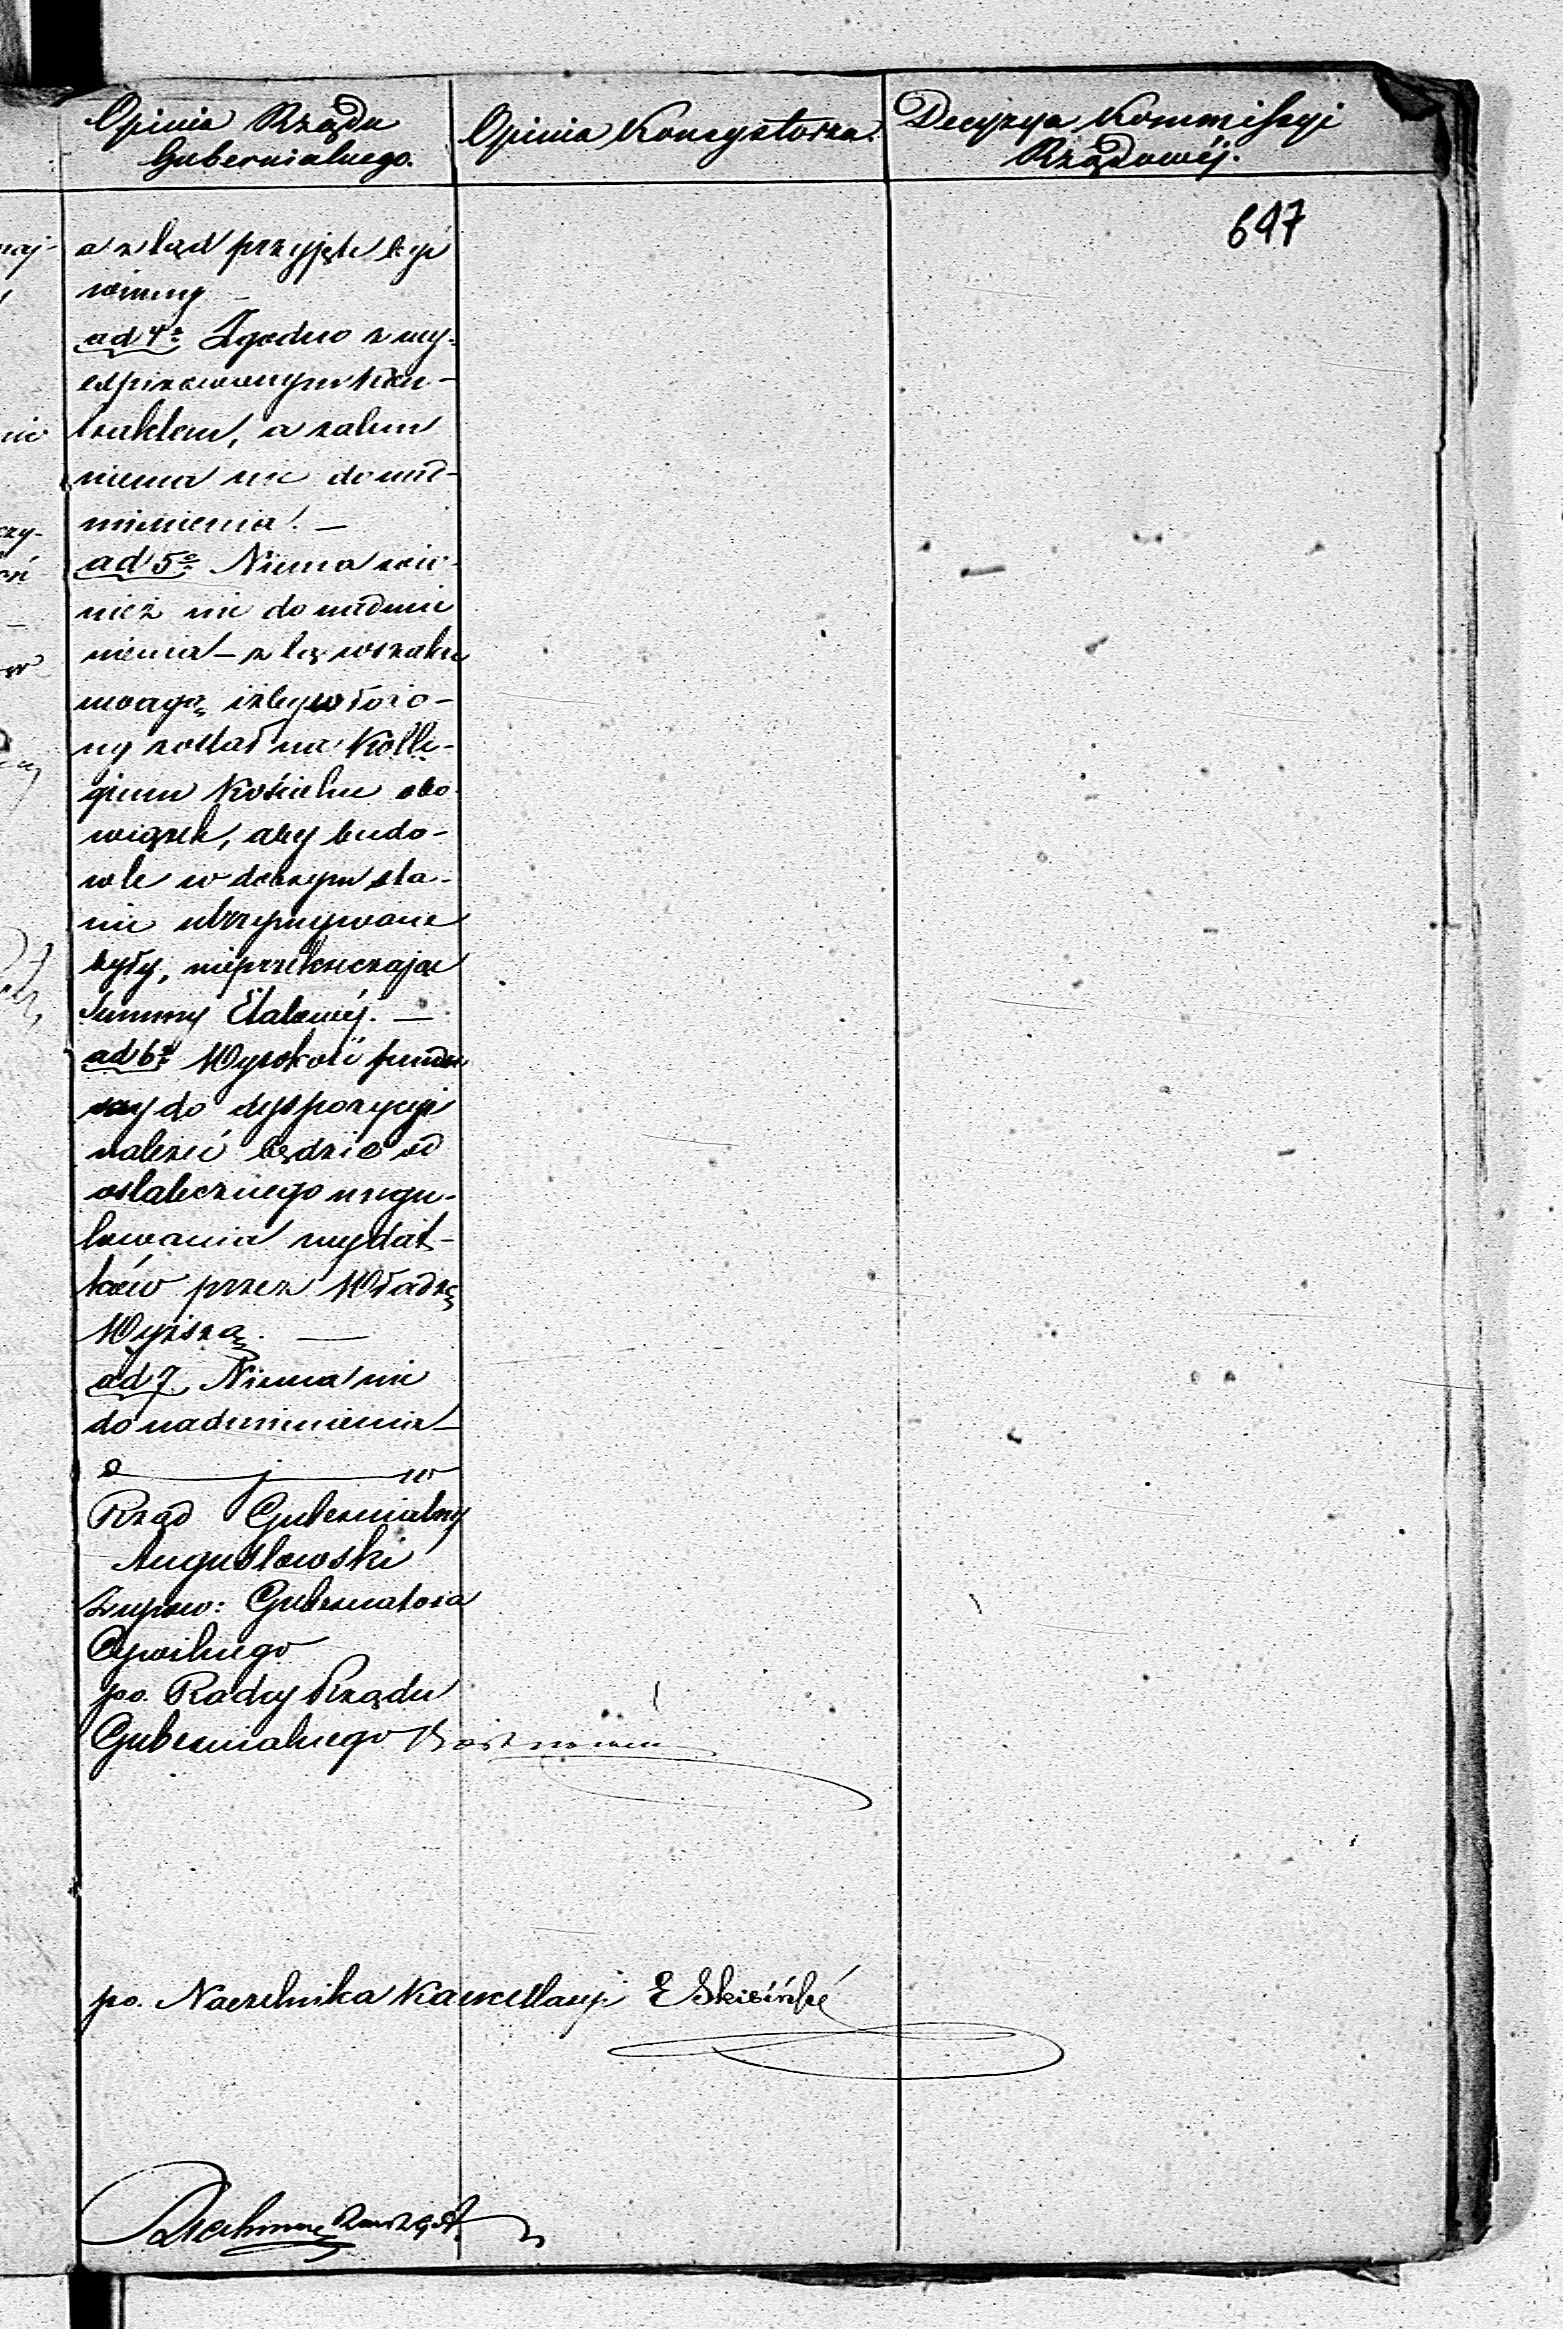 Opinia Rządu
Gubernialnego.
Opinia Konsystorza.
Decyzya Kommissyi
Rządowéj.
697
a ztąd przyjęte być
winny —
ad 4º Zgodno z wy-
exspirowanym kon-
traktem, a zatem
niema nic do nad-
mienienia. —
ad 5º Niema rów-
nież nic do nadmie
nienia — z tą wszakże
uwagą, iżby włożo-
ny został na Kolle-
gium Kościelne obo-
wiązek, aby budo-
wle w dobrym sta-
nie utrzymywane
były, nieprzekraczając
Summy Etatowéj. —
ad 6º Wysokość fundu
szu do dyspozycyi
należeć będzie od
ostatecznego uregu-
lowania wydat-
ków przez Władzę
Wyższą. —
ad 7. Niema nic
do nadmienienia —
Rząd Gubernialny
Augustowski
Gubernatora
Cywilnego
po. Radcy Rządu
Gubernialnego
po. Naczelnika Kancellaryi E